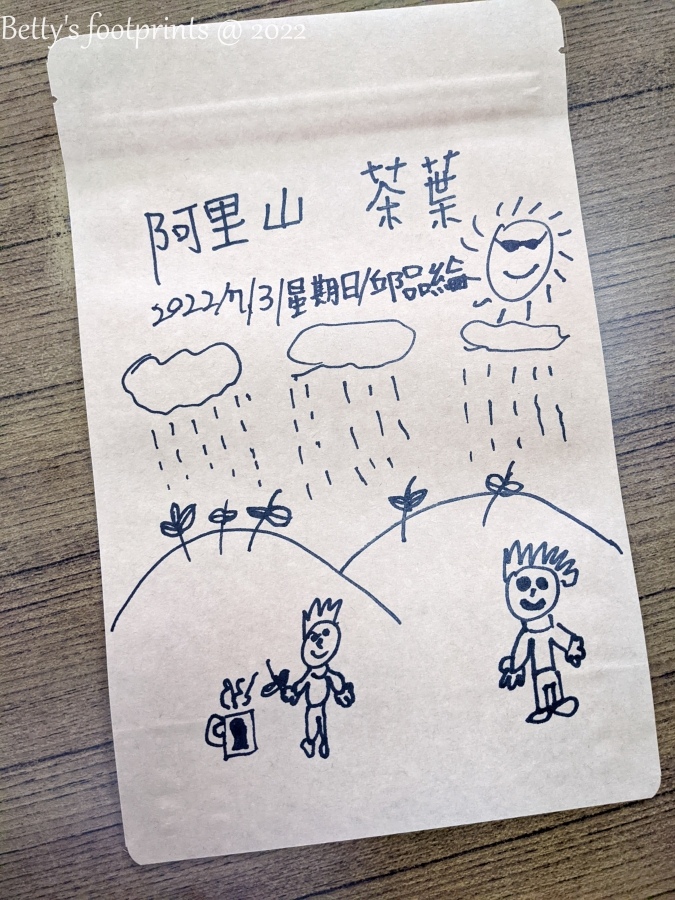 Betty's footprints @ 2022
阿里山 茶葉
2022/7/3/星期日/邱品綸